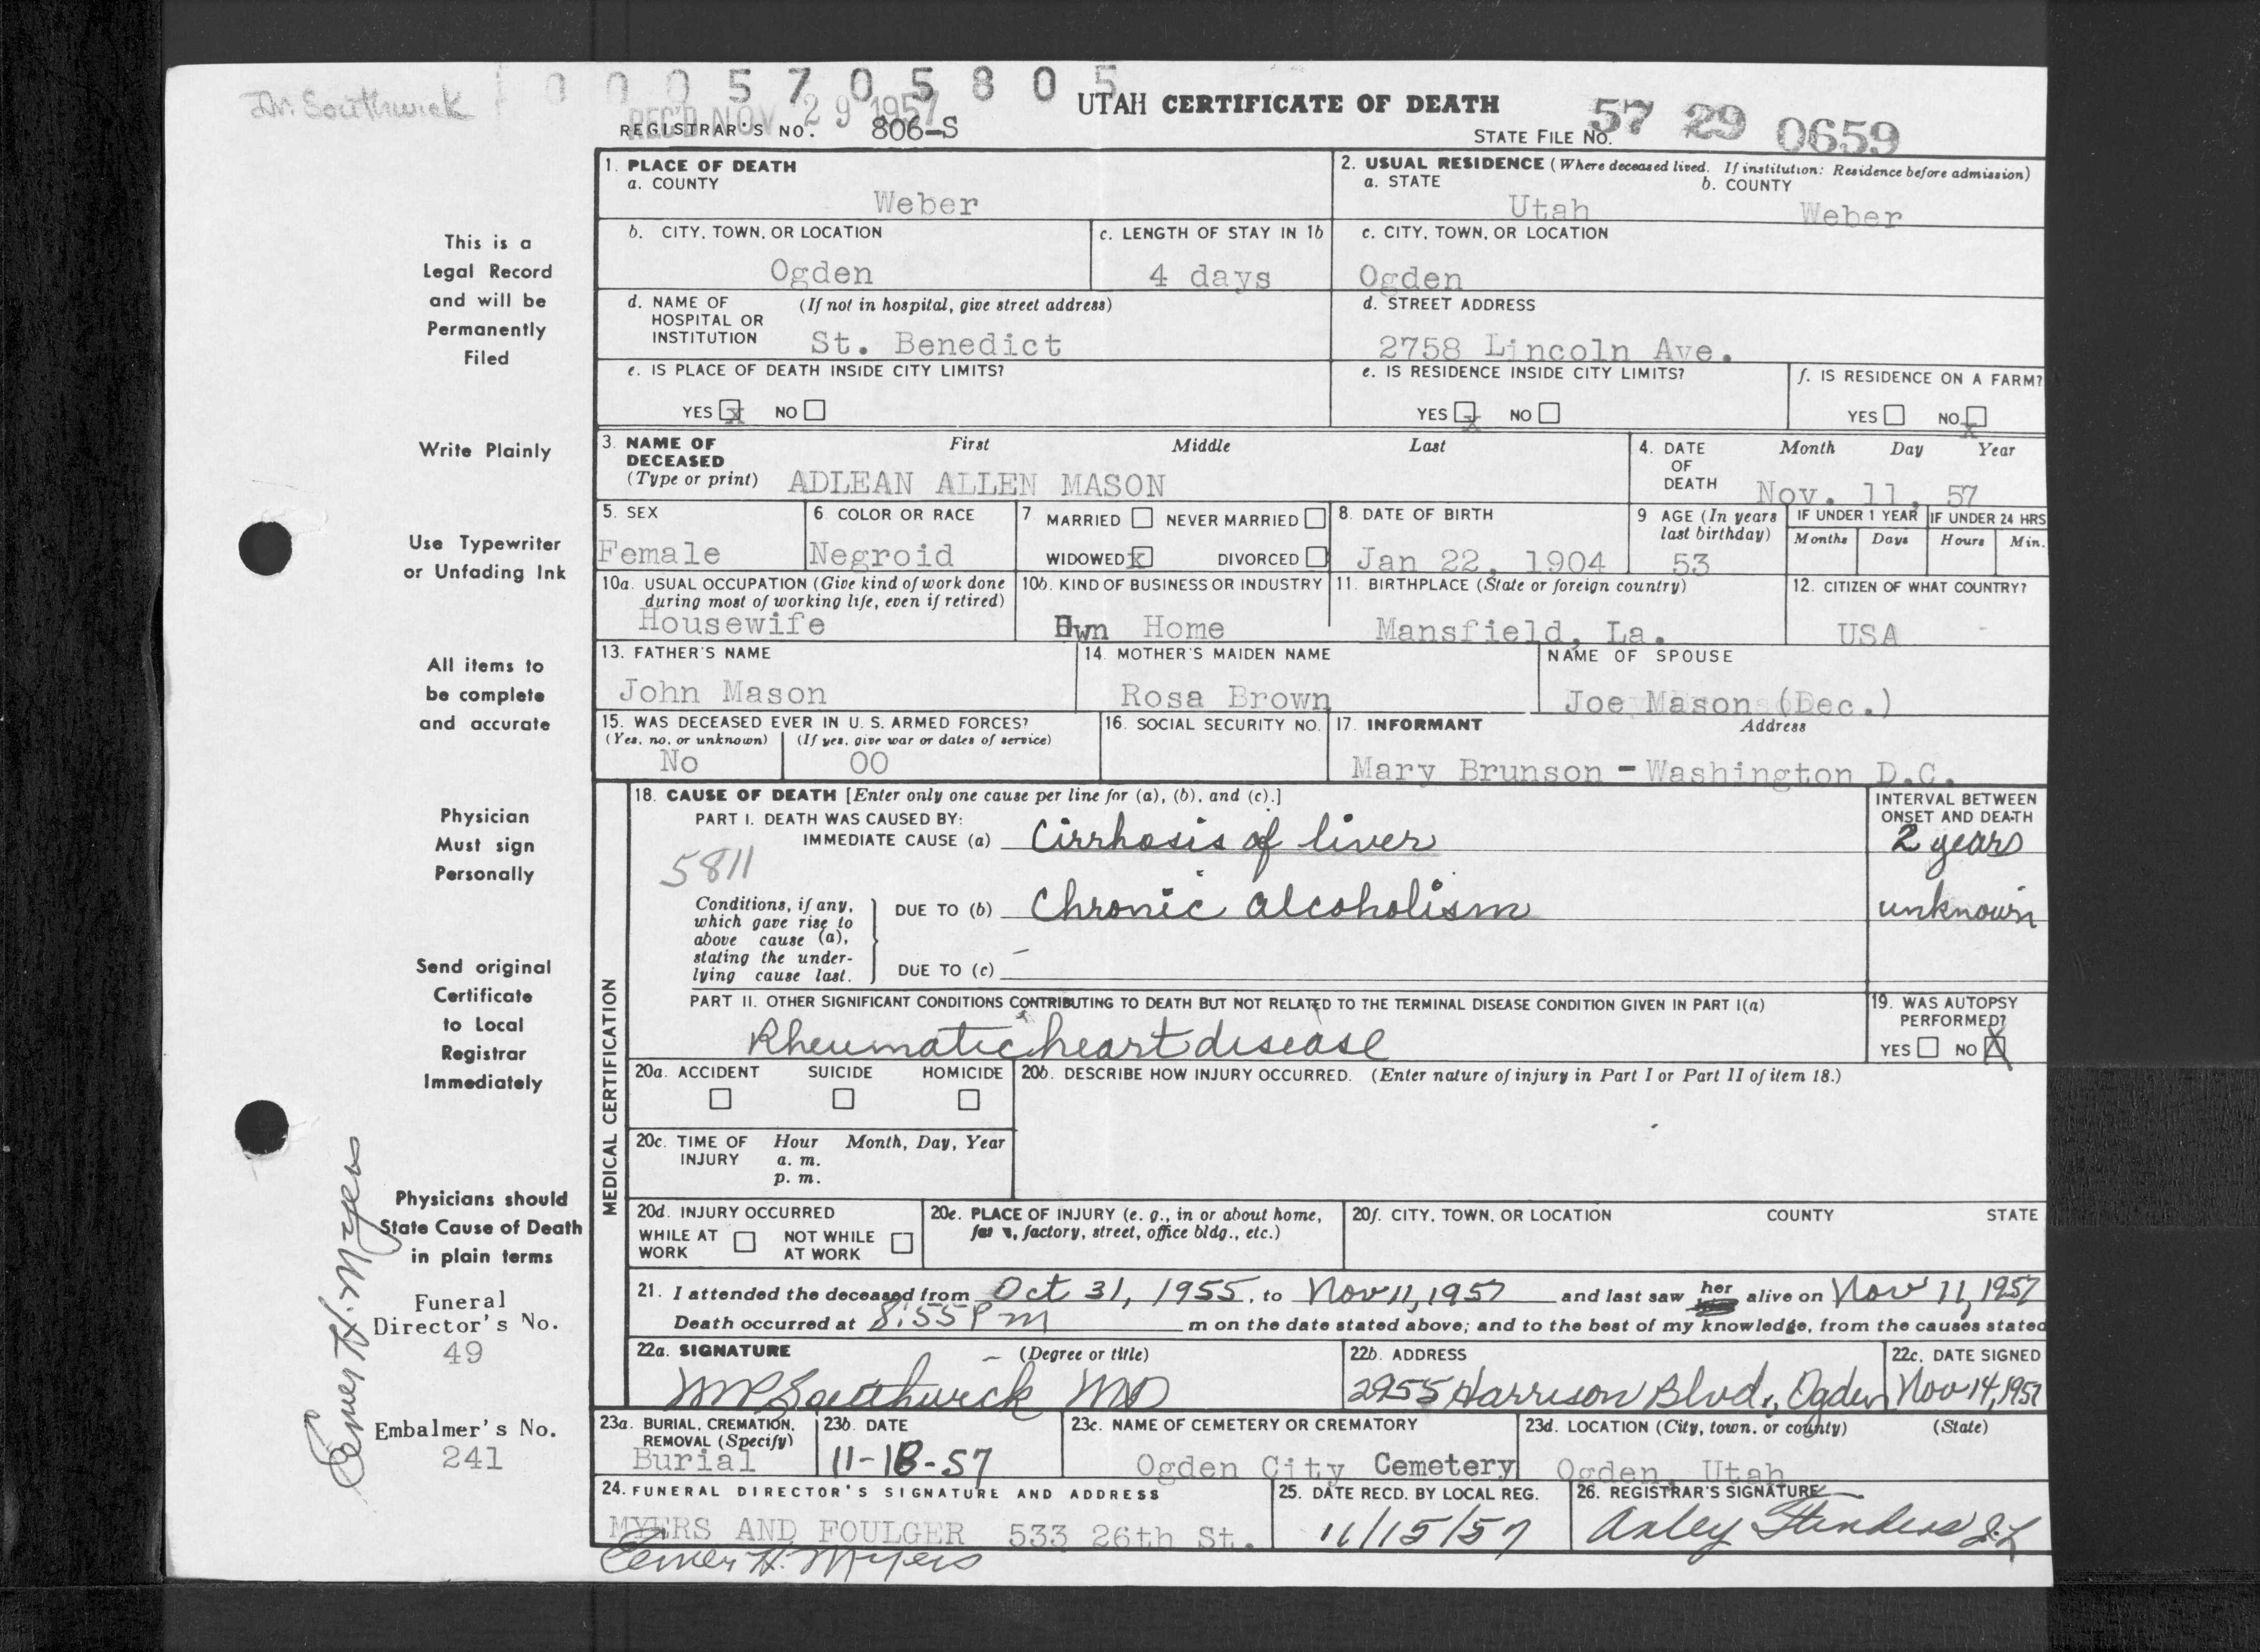 Dr. Southwick
1 0 0 0 5 7 0 5 8 0 5
REC'D NOV 29 1957
UTAH CERTIFICATE OF DEATH
REGISTRAR'S NO. 806-S
STATE FILE NO. 57 29 0659
This is a
Legal Record
and will be
Permanently
Filed
Write Plainly
Use Typewriter
or Unfading Ink
All items to
be complete
and accurate
Physician
Must sign
Personally
Send original
Certificate
to Local
Registrar
Immediately
Physicians should
State Cause of Death
in plain terms
Funeral
Director's No.
49
Embalmer's No.
241
Elmer H. Myers
1. PLACE OF DEATH
a. COUNTY
Weber
2. USUAL RESIDENCE (Where deceased lived. If institution: Residence before admission)
a. STATE b. COUNTY
Utah Weber
b. CITY, TOWN, OR LOCATION
Ogden
c. LENGTH OF STAY IN 1b
4 days
c. CITY, TOWN, OR LOCATION
Ogden
d. NAME OF (If not in hospital, give street address)
HOSPITAL OR
INSTITUTION St. Benedict
d. STREET ADDRESS
2758 Lincoln Ave.
e. IS PLACE OF DEATH INSIDE CITY LIMITS?
YES x NO
e. IS RESIDENCE INSIDE CITY LIMITS?
YES x NO
f. IS RESIDENCE ON A FARM?
YES NO x
3. NAME OF First Middle Last
DECEASED
(Type or print) ADLEAN ALLEN MASON
4. DATE Month Day Year
OF
DEATH Nov. 11, 57
5. SEX
Female
6. COLOR OR RACE
Negroid
7 MARRIED NEVER MARRIED
WIDOWED x DIVORCED
8. DATE OF BIRTH
Jan 22, 1904
9 AGE (In years
last birthday)
53
IF UNDER 1 YEAR
Months Days
IF UNDER 24 HRS
Hours Min.
10a. USUAL OCCUPATION (Give kind of work done
during most of working life, even if retired)
Housewife
10b. KIND OF BUSINESS OR INDUSTRY
Own Home
11. BIRTHPLACE (State or foreign country)
Mansfield, La.
12. CITIZEN OF WHAT COUNTRY?
USA
13. FATHER'S NAME
John Mason
14. MOTHER'S MAIDEN NAME
Rosa Brown
NAME OF SPOUSE
Joe Mason (Dec.)
15. WAS DECEASED EVER IN U. S. ARMED FORCES?
(Yes, no, or unknown) (If yes, give war or dates of service)
No 00
16. SOCIAL SECURITY NO.
17. INFORMANT Address
Mary Brunson - Washington D.C.
MEDICAL CERTIFICATION
18. CAUSE OF DEATH [Enter only one cause per line for (a), (b), and (c).]
PART I. DEATH WAS CAUSED BY:
IMMEDIATE CAUSE (a) Cirrhosis of liver
5811
INTERVAL BETWEEN
ONSET AND DEATH
2 years
Conditions, if any,
which gave rise to
above cause (a),
stating the under-
lying cause last.
DUE TO (b) Chronic alcoholism
unknown
DUE TO (c) -
PART II. OTHER SIGNIFICANT CONDITIONS CONTRIBUTING TO DEATH BUT NOT RELATED TO THE TERMINAL DISEASE CONDITION GIVEN IN PART I(a)
Rheumatic heart disease
19. WAS AUTOPSY
PERFORMED?
YES NO X
20a. ACCIDENT SUICIDE HOMICIDE
20b. DESCRIBE HOW INJURY OCCURRED. (Enter nature of injury in Part I or Part II of item 18.)
20c. TIME OF Hour Month, Day, Year
INJURY a. m.
p. m.
20d. INJURY OCCURRED
WHILE AT NOT WHILE
WORK AT WORK
20e. PLACE OF INJURY (e. g., in or about home,
factory, street, office bldg., etc.)
20f. CITY, TOWN, OR LOCATION COUNTY STATE
21. I attended the deceased from Oct 31, 1955, to Nov 11, 1957 and last saw her alive on Nov 11, 1957
Death occurred at 8:55 P m m on the date stated above; and to the best of my knowledge, from the causes stated
22a. SIGNATURE (Degree or title)
Southwick MD
22b. ADDRESS
2955 Harrison Blvd., Ogden
22c. DATE SIGNED
Nov 14, 1957
23a. BURIAL, CREMATION,
REMOVAL (Specify)
Burial
23b. DATE
11-18-57
23c. NAME OF CEMETERY OR CREMATORY
Ogden City Cemetery
23d. LOCATION (City, town, or county) (State)
Ogden, Utah
24. FUNERAL DIRECTOR'S SIGNATURE AND ADDRESS
MYERS AND FOULGER 533 26th St.
Elmer H. Myers
25. DATE RECD. BY LOCAL REG.
11/15/57
26. REGISTRAR'S SIGNATURE